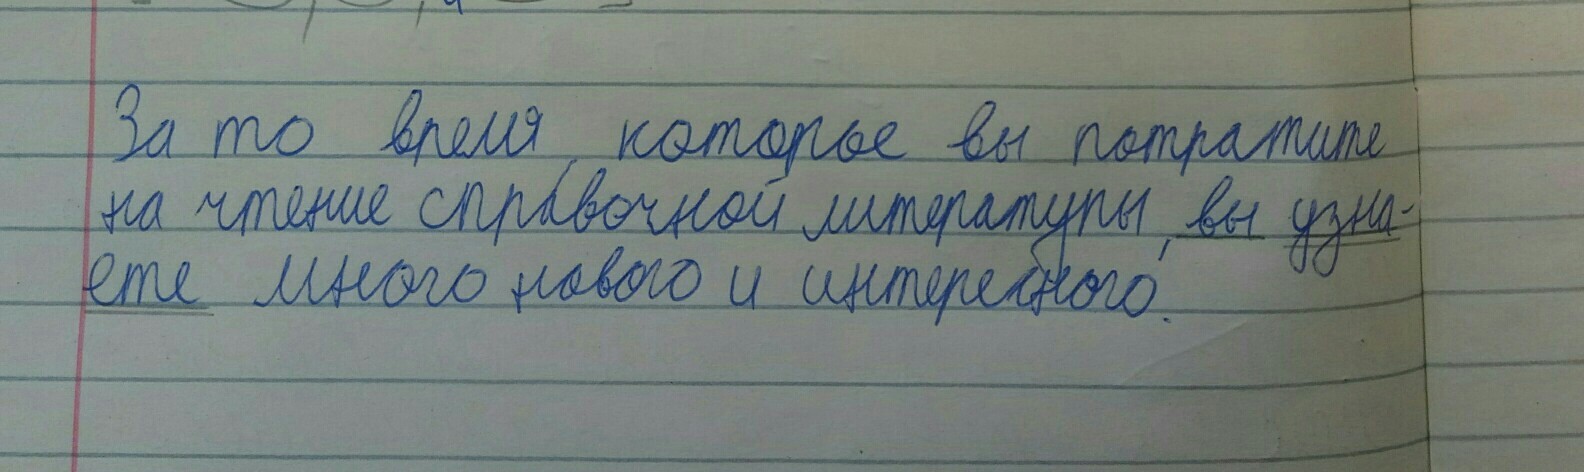 За то время, которое вы потратите
на чтение справочной литературы, вы узна-
ете много нового и интересного.